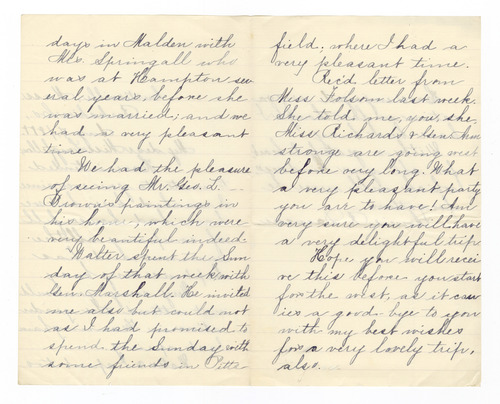 days in Malden with
Mrs. Springall who
was at Hampton sev-
eral years, before she
was married; and we
had a very pleasant
time.
We had the pleasure
of seeing Mr. Geo. L.
Brown's paintings in
his home; which were
very beautiful indeed.
Walter spent the Sun
day of that week with
Gen. Marshall. He invited
me also but could not
as I had promised to
spend the Sunday with
some friends in Pitts
field; where I had a
very pleasant time.
Rec'd letter from
Miss Folsom last week.
She told me, you, she,
Miss Richards & Gen. Arm
strong are going west
before very long. What
a very pleasant party
you are to have! Am
very sure you will have
a very delightful trip.
Hope you will recei
ve this before you start
for the west, as it carr
ies a good-bye to you
with my best wishes
for a very lovely trip,
also.